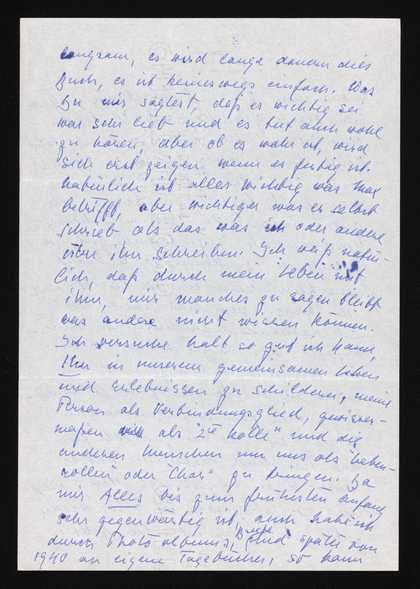 langsam, es wird lange dauern dies
Buch, es ist keineswegs einfach. Was
Du mir sagtest, daß es wichtig sei
war sehr lieb und es tut auch wohl
zu hören, aber ob es wahr ist, wird
sich erst zeigen wenn es fertig ist.
Natürlich ist alles wichtig was Max
betrifft, aber wichtiger was er selbst
schrieb als das was ich oder andere
über ihn schreiben. Ich weiß natür-
lich, daß durch mein Leben mit
ihm, mir manches zu sagen bleibt
was andere nicht wissen können.
Ich versuche halt so gut ich kann,
Ihn in unserem gemeinsamen Leben
und Erlebnissen zu schildern, meine
Person als Verbindungsglied, gewisser-
maßen als "2te Rolle" und die
anderen Menschen um uns als Neben-
rollen oder "Chor" zu bringen. Da
mir Alles bis zum frühesten Anfang
sehr gegenwärtig ist, auch habe ich
durch Photoalbums, Briefe und später von
1940 an eigene Tagebücher, so kann